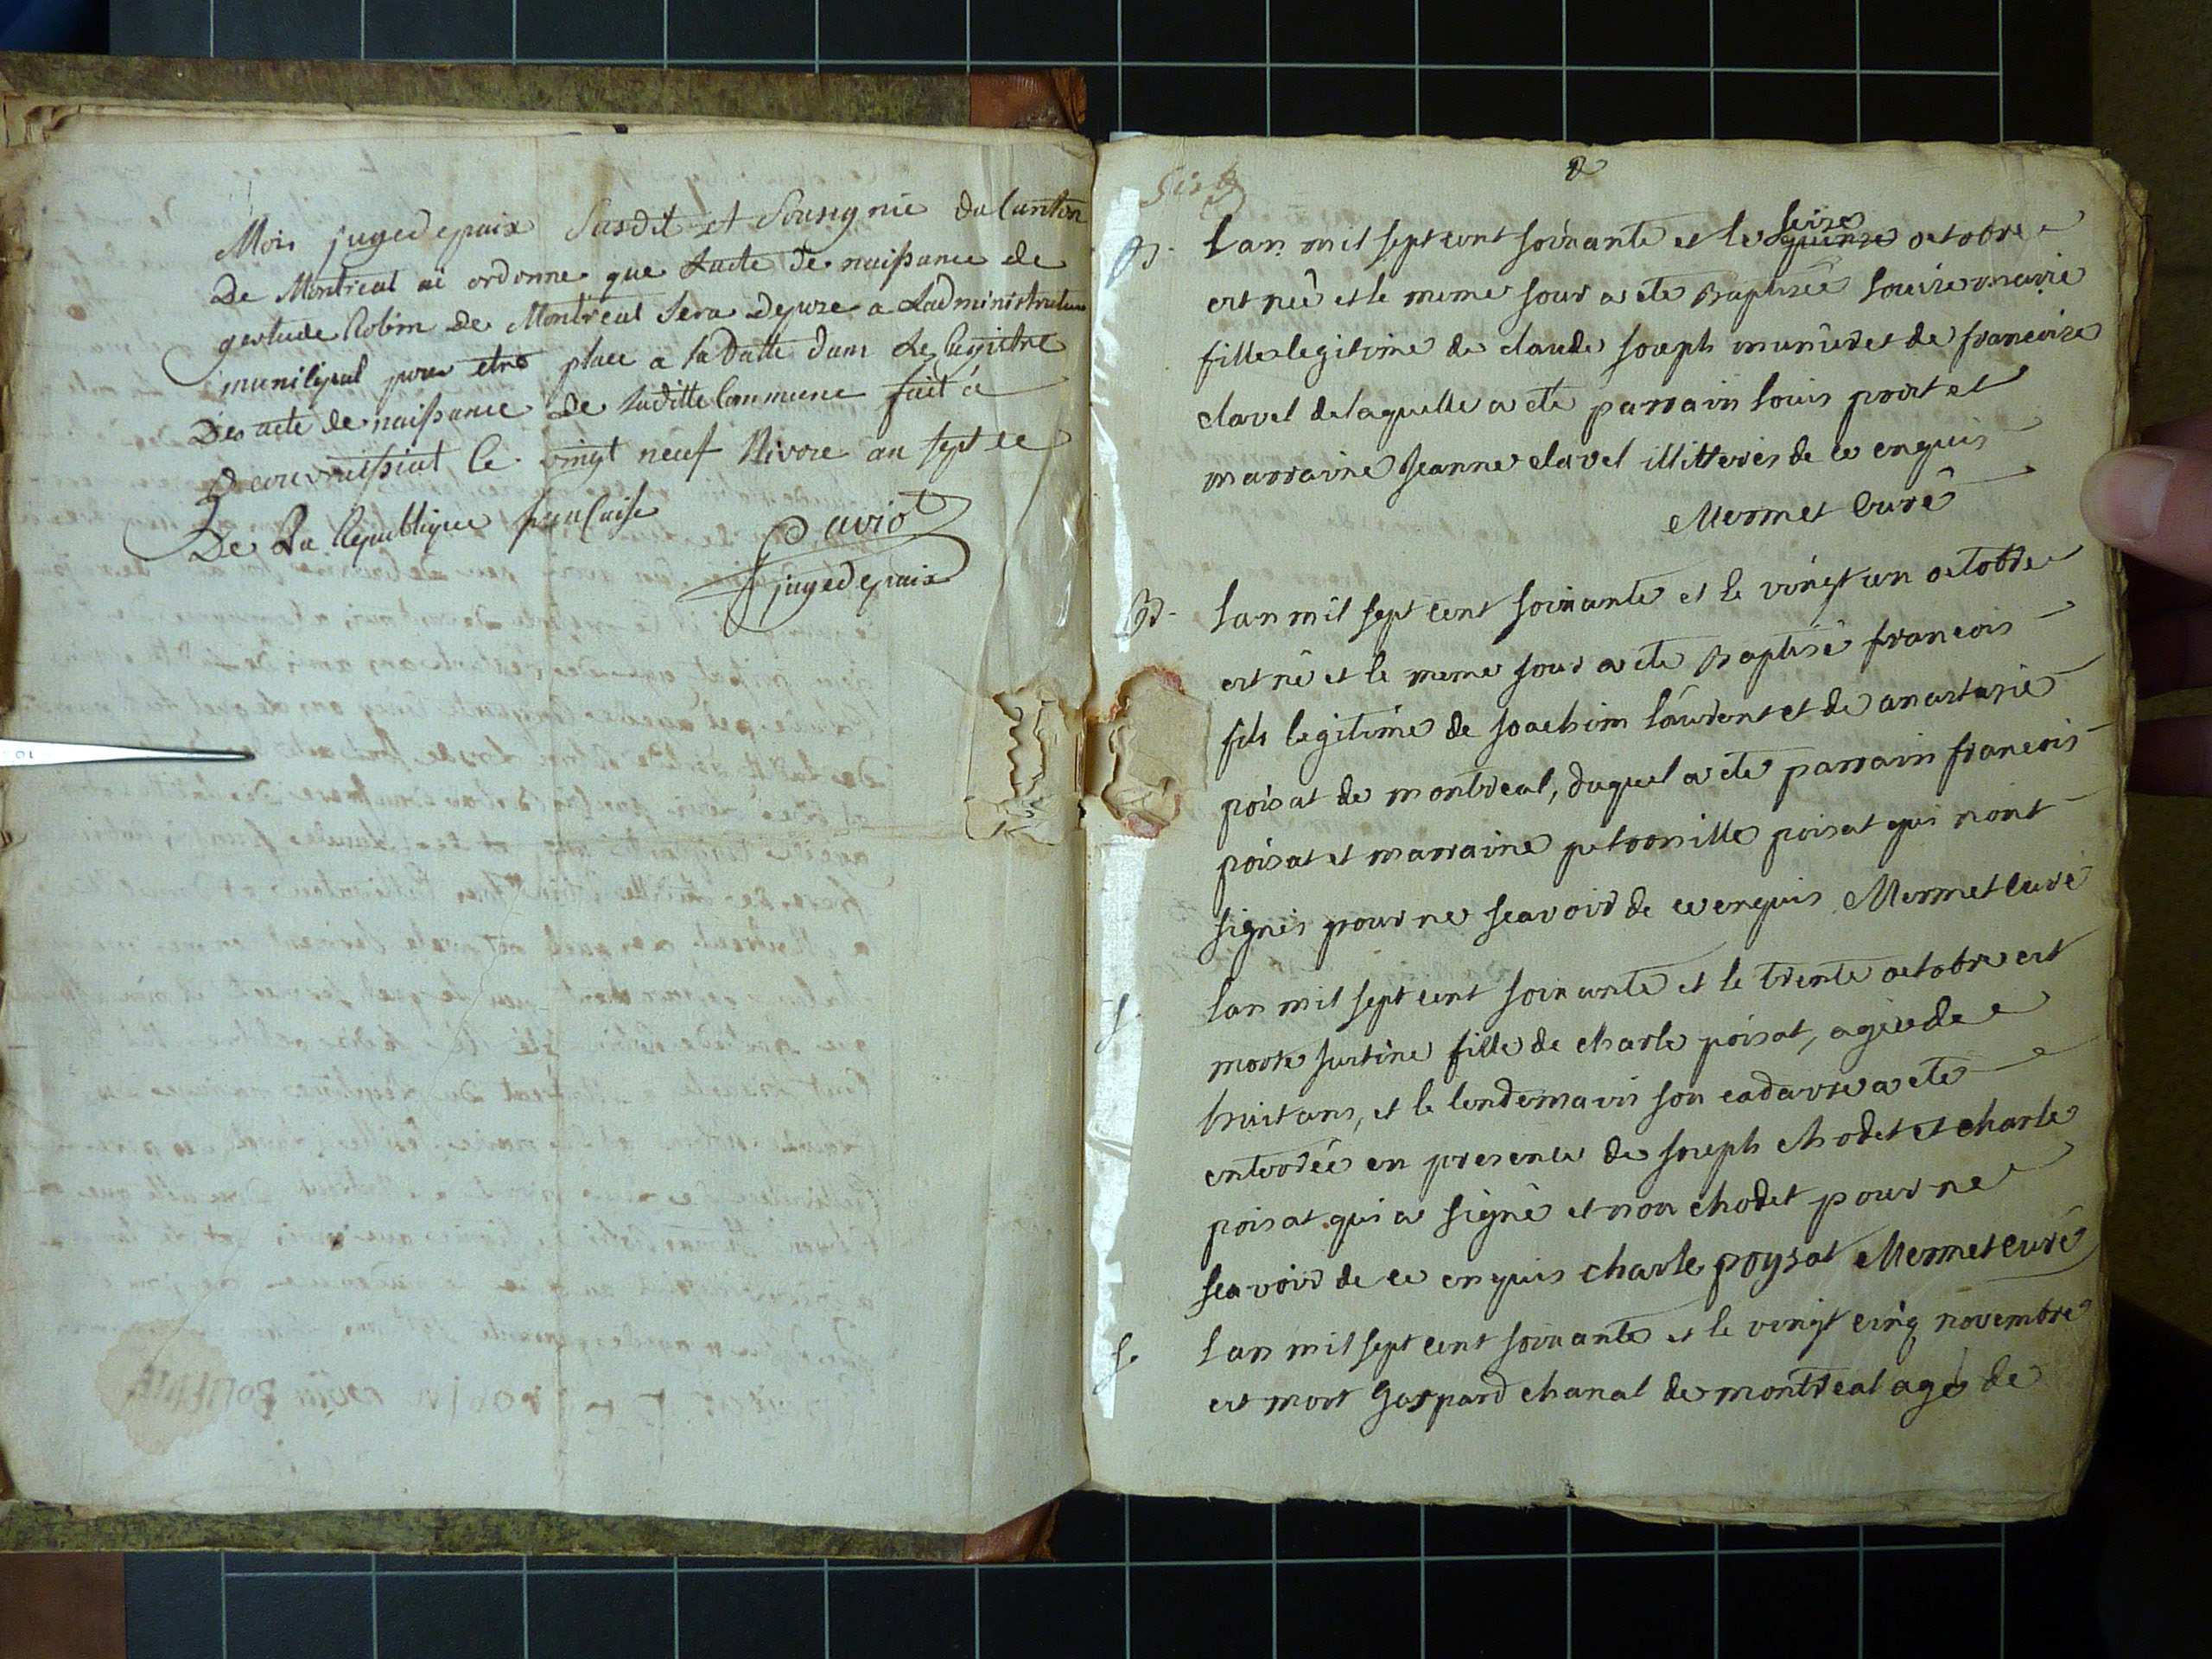 Moi jugedepaix Susdit et Sousignié du Canton
De Montreal ai ordonne que Lacte de naissance de
gertude Robin de Montreal Sera depoze a Ladministration
municipal pour etre place a la Datte dans Le Registre
Des acte de naissance de Laditte Commune fait à
le vingt neuf Nivore an sept de
De La Republique francaise
Savio
jugedepaix
B. Lan mil sept cent soixante et le seize quinze octobre
est née et le meme jour a ete Baptisée Louise marie
fille legitime de claude joseph et de francoise
clavel delaquelle a ete parrain Louis et
marraine jeanne clavel illitterés de ce enquis
Mermet Curé
B. Lan mil sept cent soixante et le vingt un octobre
est né et le meme jour a ete Baptisé francois
fils legitime de joachim Laurent et de anastasie
poisat de montreal, duquel a ete parrain francois
poisat et marraine petronille poisat qui nont
signés pour ne scavoir de ce enquis Mermet curé
S. Lan mil sept cent soixante et le trente octobre est
morte justine fille de charle poisat, agée de
huit ans, et le lendemain son cadavre a ete
enterrée en presence de joseph chodet et charle
poisat qui a signé et non chodet pour ne
scavoir de ce enquis charle poysat Mermet curé
S. Lan mil sept cent soixante et le vingt cinq novembre
est mort Gaspard chanal de montreal agé de